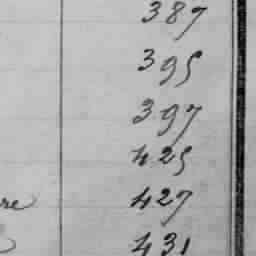 387
395
397
425
re 427
431